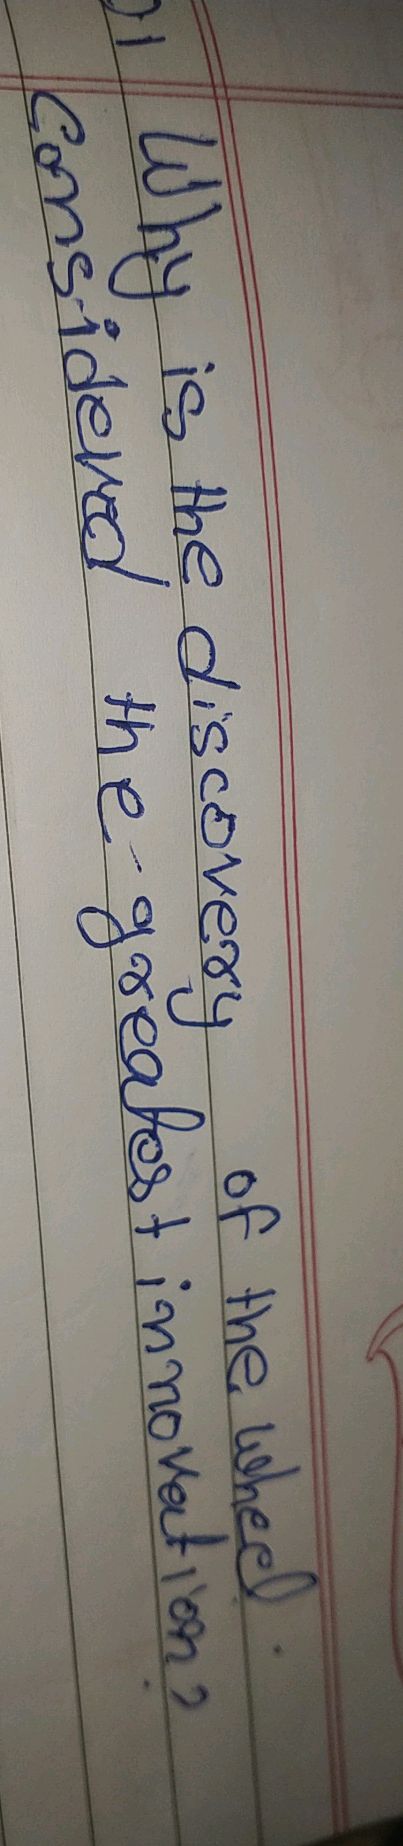 Why is the discovery of the wheel
considered the greatest innovation?